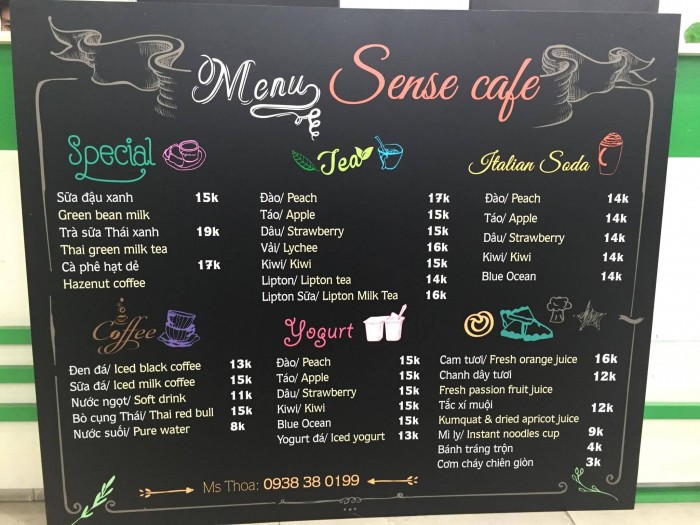 Menu Sense cafe
Special
Sữa đậu xanh 15k
Green bean milk
Trà sữa Thái xanh 19k
Thai green milk tea
Cà phê hạt dẻ 17k
Hazenut coffee
Tea
Đào/ Peach 17k
Táo/ Apple 15k
Dâu/ Strawberry 15k
Vải/ Lychee 16k
Kiwi/ Kiwi 15k
Lipton/ Lipton tea 14k
Lipton Sữa/ Lipton Milk Tea 16k
Italian Soda
Đào/ Peach 14k
Táo/ Apple 14k
Dâu/ Strawberry 14k
Kiwi/ Kiwi 14k
Blue Ocean 14k
Coffee
Đen đá/ Iced black coffee 13k
Sữa đá/ Iced milk coffee 15k
Nước ngọt/ Soft drink 11k
Bò cụng Thái/ Thai red bull 15k
Nước suối/ Pure water 8k
Yogurt
Đào/ Peach 15k
Táo/ Apple 15k
Dâu/ Strawberry 15k
Kiwi/ Kiwi 15k
Blue Ocean 15k
Yogurt đá/ Iced yogurt 13k
Cam tươi/ Fresh orange juice 16k
Chanh dây tươi 12k
Fresh passion fruit juice
Tắc xí muội 12k
Kumquat & dried apricot juice
Mì ly/ Instant noodles cup 9k
Bánh tráng trộn 4k
Cơm cháy chiên giòn 3k
Ms Thoa: 0938 38 0199